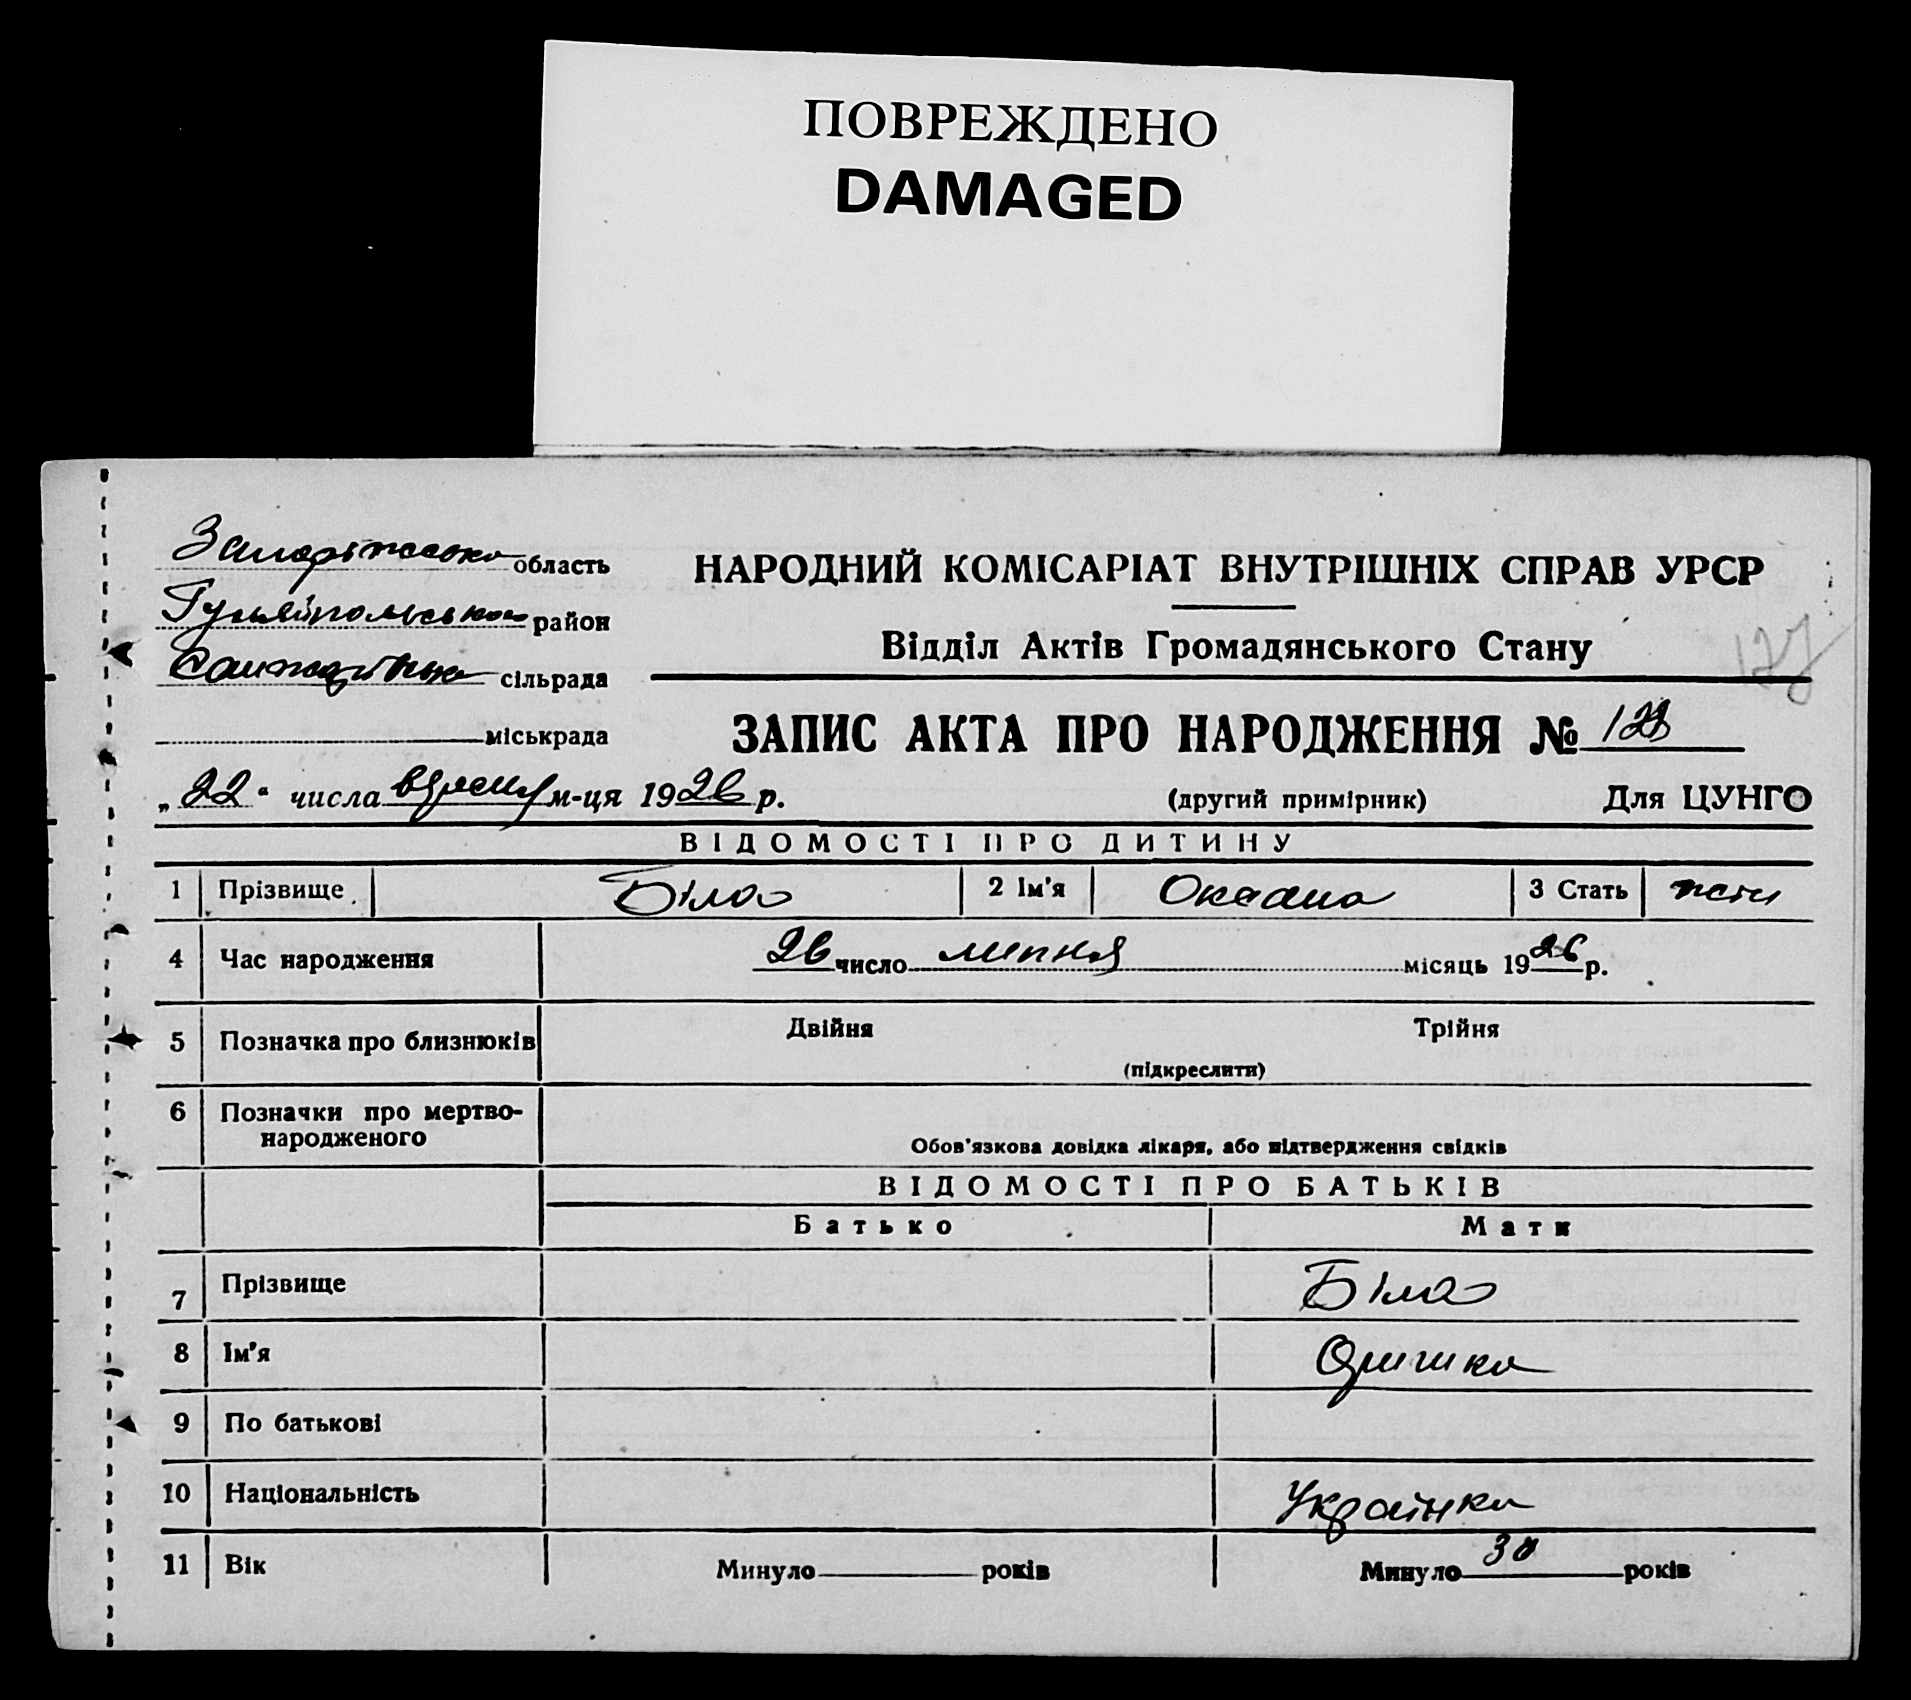 ПОВРЕЖДЕНО
DAMAGED
Запоріжська область
Гуляйпольський район
сільрада
міськрада
НАРОДНИЙ КОМІСАРІАТ ВНУТРІШНІХ СПРАВ УРСР
Відділ Актів Громадянського Стану
127
ЗАПИС АКТА ПРО НАРОДЖЕННЯ №
„22“ числа вересня м-ця 1926 р.
(другий примірник) Для ЦУНГО
ВІДОМОСТІ ПРО ДИТИНУ
1 Прізвище Біла 2 Ім'я Оксана 3 Стать жін
4 Час народження 26 число липня місяць 1926 р.
5 Позначка про близнюків Двійня Трійня
(підкреслити)
6 Позначки про мертво-
народженого
Обов'язкова довідка лікаря, або підтвердження свідків
ВІДОМОСТІ ПРО БАТЬКІВ
Батько Мати
7 Прізвище Біла
8 Ім'я Оришка
9 По батькові
10 Національність Українка
11 Вік Минуло років Минуло 30 років